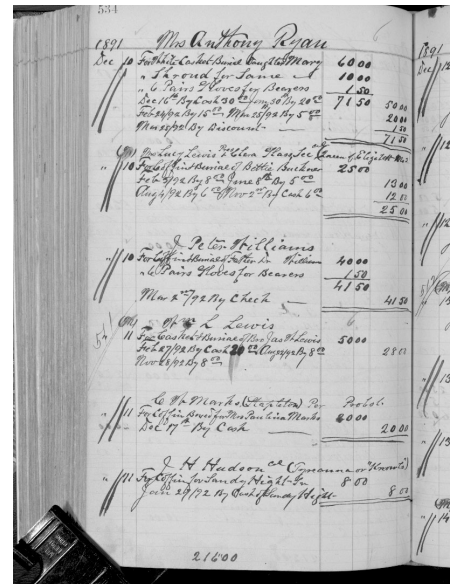 534
1891 Mrs Anthony Ryan
Dec 10 For White Casket & Burial Daughter Mary 60 00
" Shroud for Same 10 00
" 6 Pairs Gloves for Bearers 1 50
Dec 16th By Cash 30 00 Jany 30th By 20 00 71 50 50 00
Feb 24/92 By 15 00 Mar 25/92 By 5 00 20 00
Mar 25/92 By Discount 1 50
71 50
Lucy Lewis Clara
" 10 For Coffin & Burial of Bettie Buckner 25 00
Feb 5/92 By 8 00 June 8th By 5 00 13 00
Aug 4/92 By 6 00 Nov 2nd By Cash 6 00 12 00
25 00
J Peter Williams
" 10 For Coffin & Burial of Father Williams 40 00
" 6 Pairs Gloves for Bearers 1 50
41 50
Mar 2nd/92 By Check 41 50
Wm L Lewis
" 11 For Casket & Burial of Bro Jas H Lewis 50 00
Feb 27/92 By Cash 20 00 Aug 24/92 By 8 00 28 00
Nov 28/92 By 8 00
C W Marks (Stapleton) Por Probst
" 11 For Coffin Box for Mrs Paulina Marks 20 00
Dec 17th By Cash 20 00
J H Hudson
" 11 For Coffin for Sandy Hight 8 00
Jan 29/92 By Cash of Sandy Hight 8 00
216 00
1891
Dec